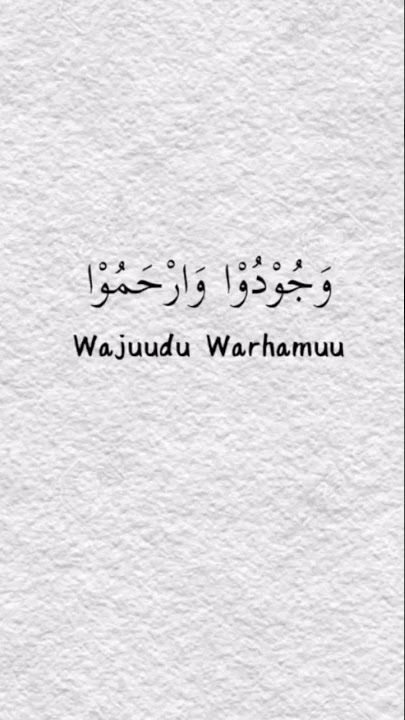 وَجُوْدُوْا وَارْحَمُوْا
Wajuudu Warhamuu